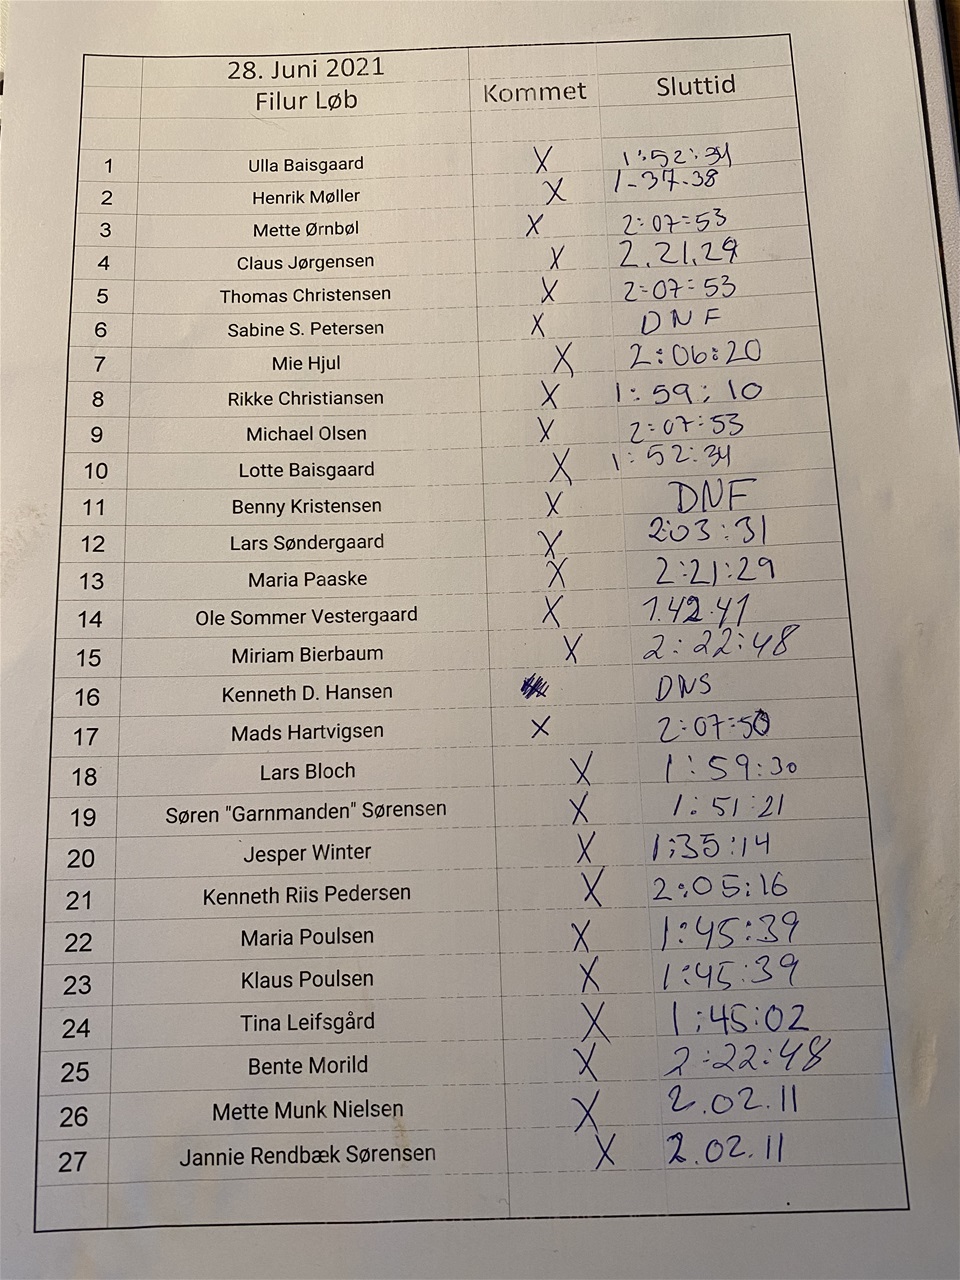 28. Juni 2021
Filur Løb Kommet Sluttid
1 Ulla Baisgaard X 1:52:34
2 Henrik Møller X 1-37-38
3 Mette Ørnbøl X 2:07:53
4 Claus Jørgensen X 2.21.29
5 Thomas Christensen X 2:07:53
6 Sabine S. Petersen X DNF
7 Mie Hjul X 2:06:20
8 Rikke Christiansen X 1:59:10
9 Michael Olsen X 2:07:53
10 Lotte Baisgaard X 1:52:34
11 Benny Kristensen X DNF
12 Lars Søndergaard X 2:03:31
13 Maria Paaske X 2:21:29
14 Ole Sommer Vestergaard X 1.42.41
15 Miriam Bierbaum X 2:22:48
16 Kenneth D. Hansen DNS
17 Mads Hartvigsen X 2:07:50
18 Lars Bloch X 1:59:30
19 Søren "Garnmanden" Sørensen X 1:51:21
20 Jesper Winter X 1:35:14
21 Kenneth Riis Pedersen X 2:05:16
22 Maria Poulsen X 1:45:39
23 Klaus Poulsen X 1:45:39
24 Tina Leifsgård X 1:45:02
25 Bente Morild X 2:22:48
26 Mette Munk Nielsen X 2.02.11
27 Jannie Rendbæk Sørensen X 2.02.11